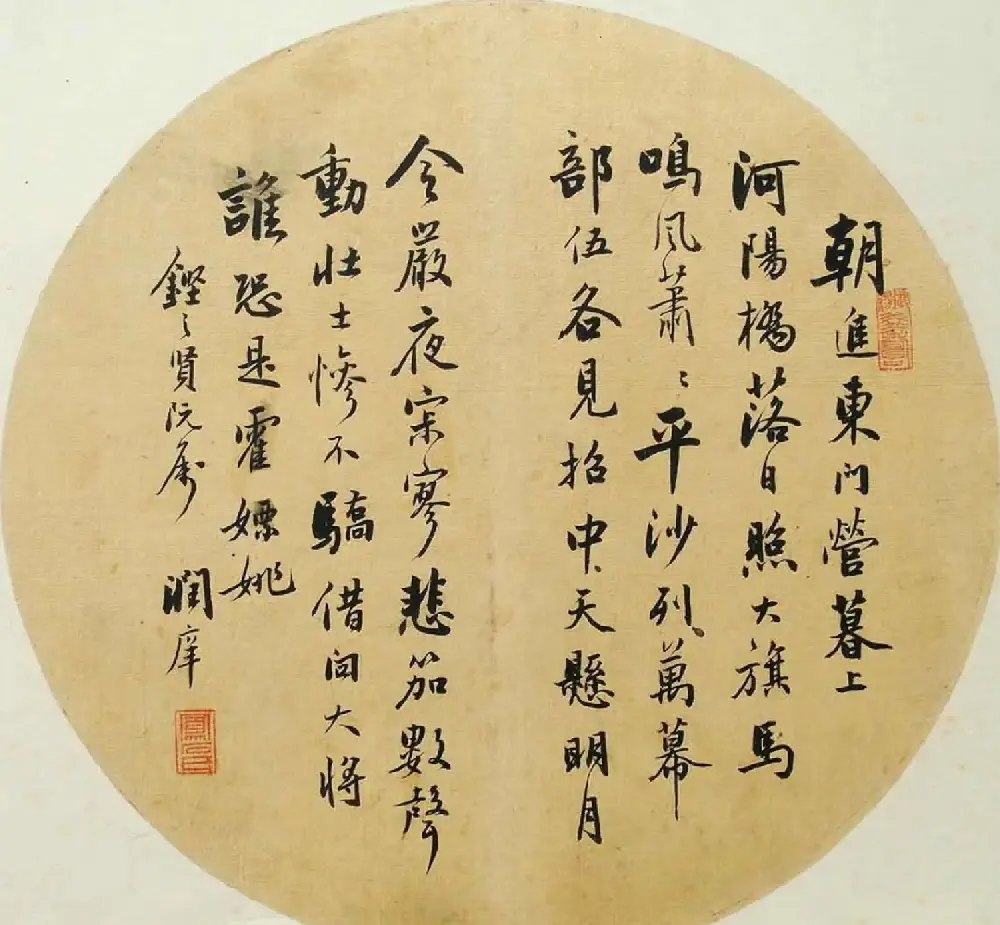 朝進東門營暮上
河陽橋落日照大旗馬
鳴風蕭〻平沙列萬幕
部伍各見招中天懸明月
令嚴夜寂寥悲笳數聲
動壯士慘不驕借問大將
誰恐是霍嫖姚
鏗之賢阮屬
潤庠